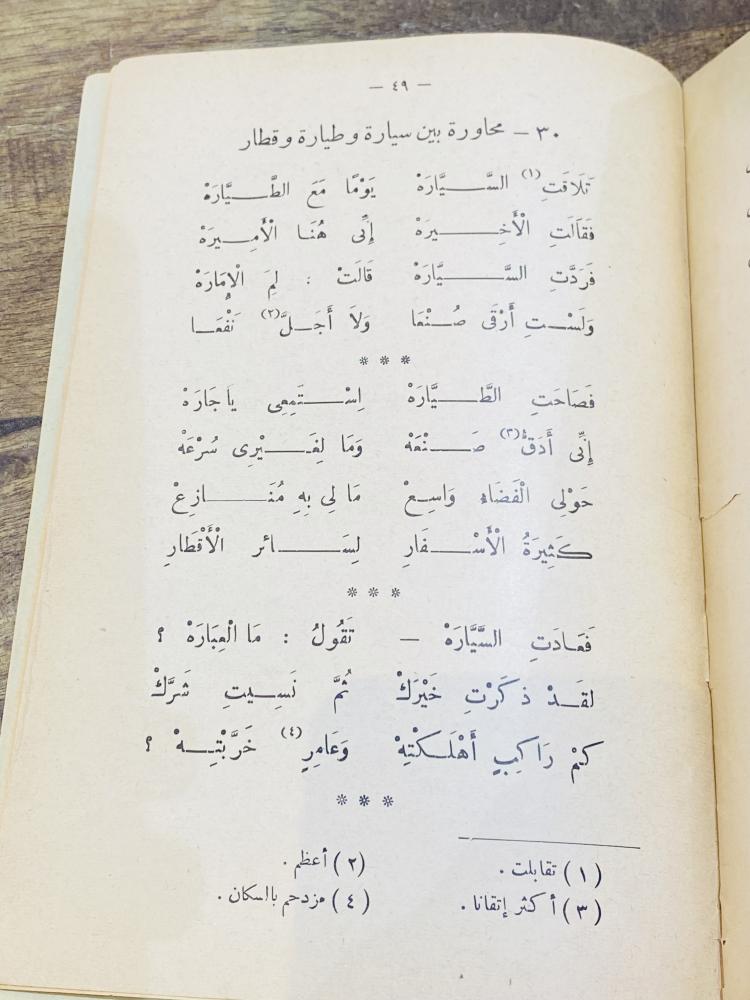 — ٤٩ —
٣٠ — محاورة بين سيارة وطيارة وقطار
تَلَاقَتِ(١) السَّيَّارَهْ يَوْمًا مَعَ الطَّيَّارَهْ
فَقَالَتِ الْأَخِيرَهْ إِنِّى هُنَا الْأَمِيرَهْ
فَرَدَّتِ السَّيَّارَهْ قَالَتْ : لِمَ الْإِمَارَهْ
وَلَسْتِ أَرْقَى صُنْعَا وَلَا أَجَلَّ(٢) نَفْعَا
* * *
فَصَاحَتِ الطَّيَّارَهْ اِسْتَمِعِى يا جَارَهْ
إِنِّى أَدَقُّ(٣) صَنْعَهْ وَمَا لِغَيْرِى سُرْعَهْ
حَوْلِى الْفَضَاءُ وَاسِعْ مَا لِى بِهِ مُنَازِعْ
كَثِيرَةُ الْأَسْفَارِ لِسَائر الْأَقْطَارِ
* * *
فَعَادَتِ السَّيَّارَهْ — تَقُولُ : مَا الْعِبَارَهْ ؟
لقَدْ ذكَرْتِ خَيْرَكْ ثُمَّ نَسِيتِ شَرَّكْ
كَمْ رَاكِبٍ أَهْلَكْتِهْ وَعَامِرٍ(٤) خَرَّبْتِهْ ؟
* * *
(١) تقابلت . (٢) أعظم .
(٣) أكثر إتقانا . (٤) مزدحم بالسكان .